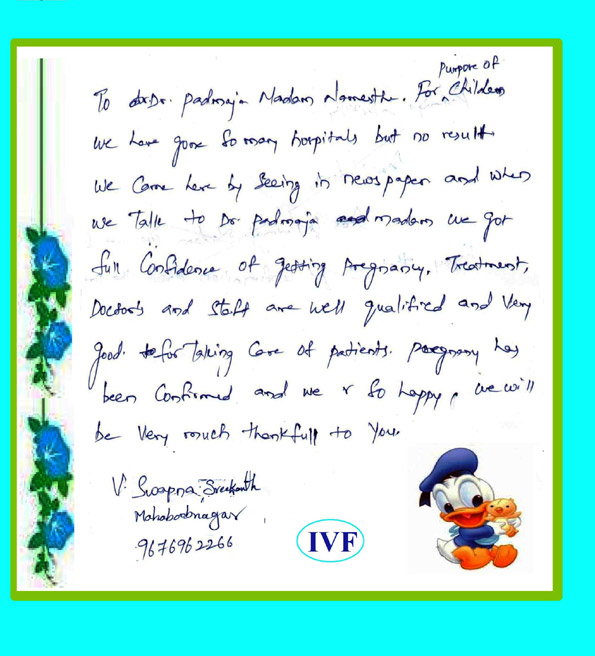 To Dr. Padmaja Madam Namesthe. For Purpose of Children
we have gone So many hospitals but no result
we Came here by Seeing in news paper and when
we Talk to Dr. Padmaja madam we got
full Confidence of getting Pregnancy. Treatment,
Doctor's and Staff are well qualifired and Very
good. for Taking Care of patients. Pregnany has
been Confirmed and we r So happy, we will
be Very much thankfull to You.
V. Swapna, Sreekanth
Mahaboobnagar
9676962266
IVF